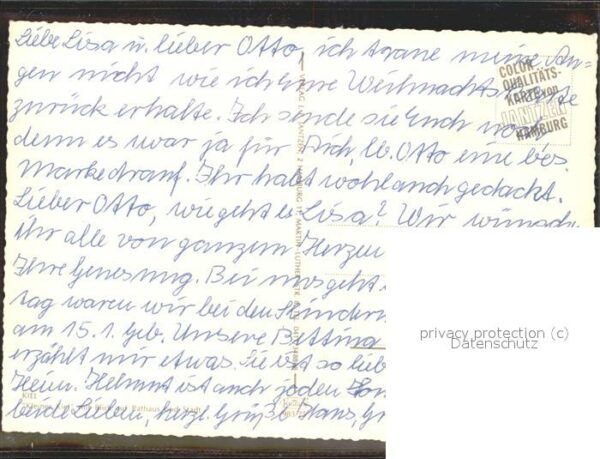 Liebe Lisa u. lieber Otto, ich traue meine Au-
gen nicht wie ich eure Weihnachtskarte
zurück erhalte. Ich sende sie Euch noch
denn es war ja für Dich, lb. Otto eine bes.
Marke drauf. Ihr habt wohl auch gedacht.
Lieber Otto, wie geht es Lisa? Wir wünsch
ihr alle von ganzem Herzen
Ihre Genesung. Bei uns geht
tag waren wir bei den Kindern
am 15.1. Geb. Unsere Bettina
erzählt mir etwas. Sie ist so lieb
Heim. Helmut ist auch jeden
beide Lieben, herzl. Grüße Hans,
COLOR
QUALITÄTS-
KARTE von
HAMBURG
KIEL
privacy protection (c)
Datenschutz